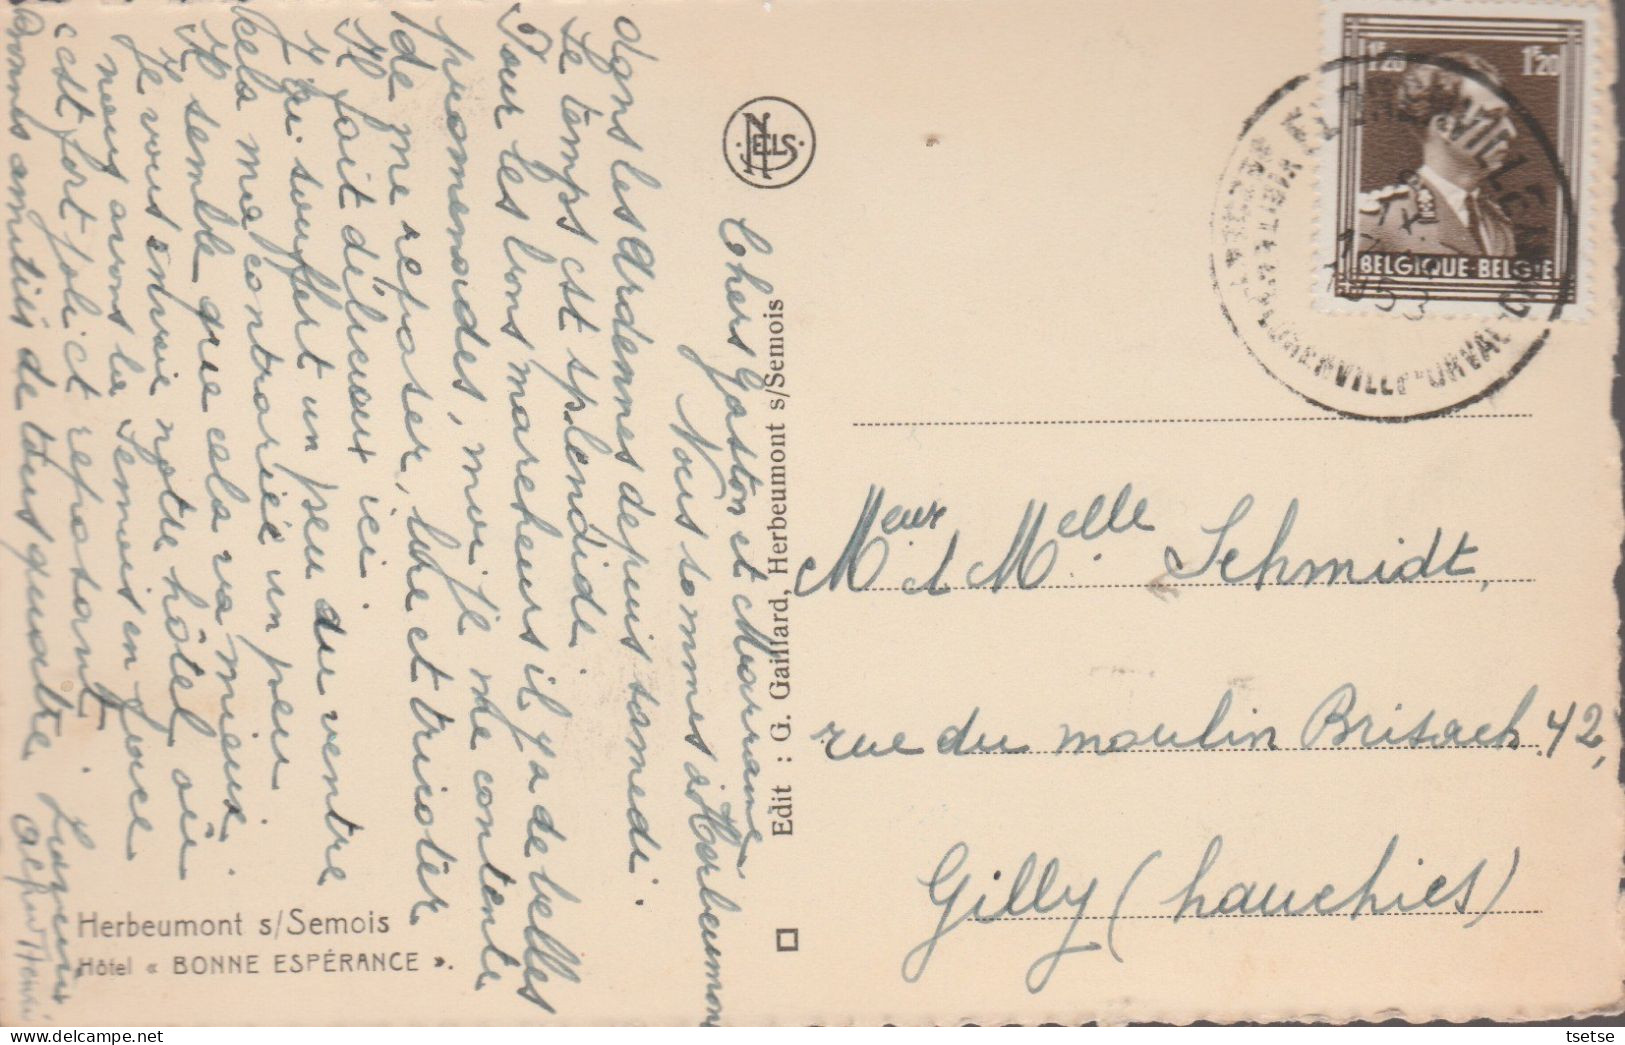 Chers Gaston et Marraine
Nous sommes à Herbeumont
dans les Ardennes depuis samedi.
Le temps est splendide.
Pour les bons marcheurs il y a de belles
promenades, moi je me contente
de me reposer, lire et tricoter
Il fait délicieux ici
J'ai souffert un peu du ventre
cela m'a contrariée un peu
Il semble que cela va mieux.
Je vous envoie notre hôtel où
nous avons la Semois en face
c'est fort joli et reposant.
Bonnes amitiés de tous quatre
Herbeumont s/Semois
Hôtel « BONNE ESPÉRANCE ».
NELS
Edit : G. Gaillard, Herbeumont s/Semois
1F20 1F20
BELGIQUE-BELGIË
1953
FLORENVILLE-ORVAL
Meur et Melle Schmidt,
rue du moulin Brisack 42,
Gilly (hauchies)
tsetse